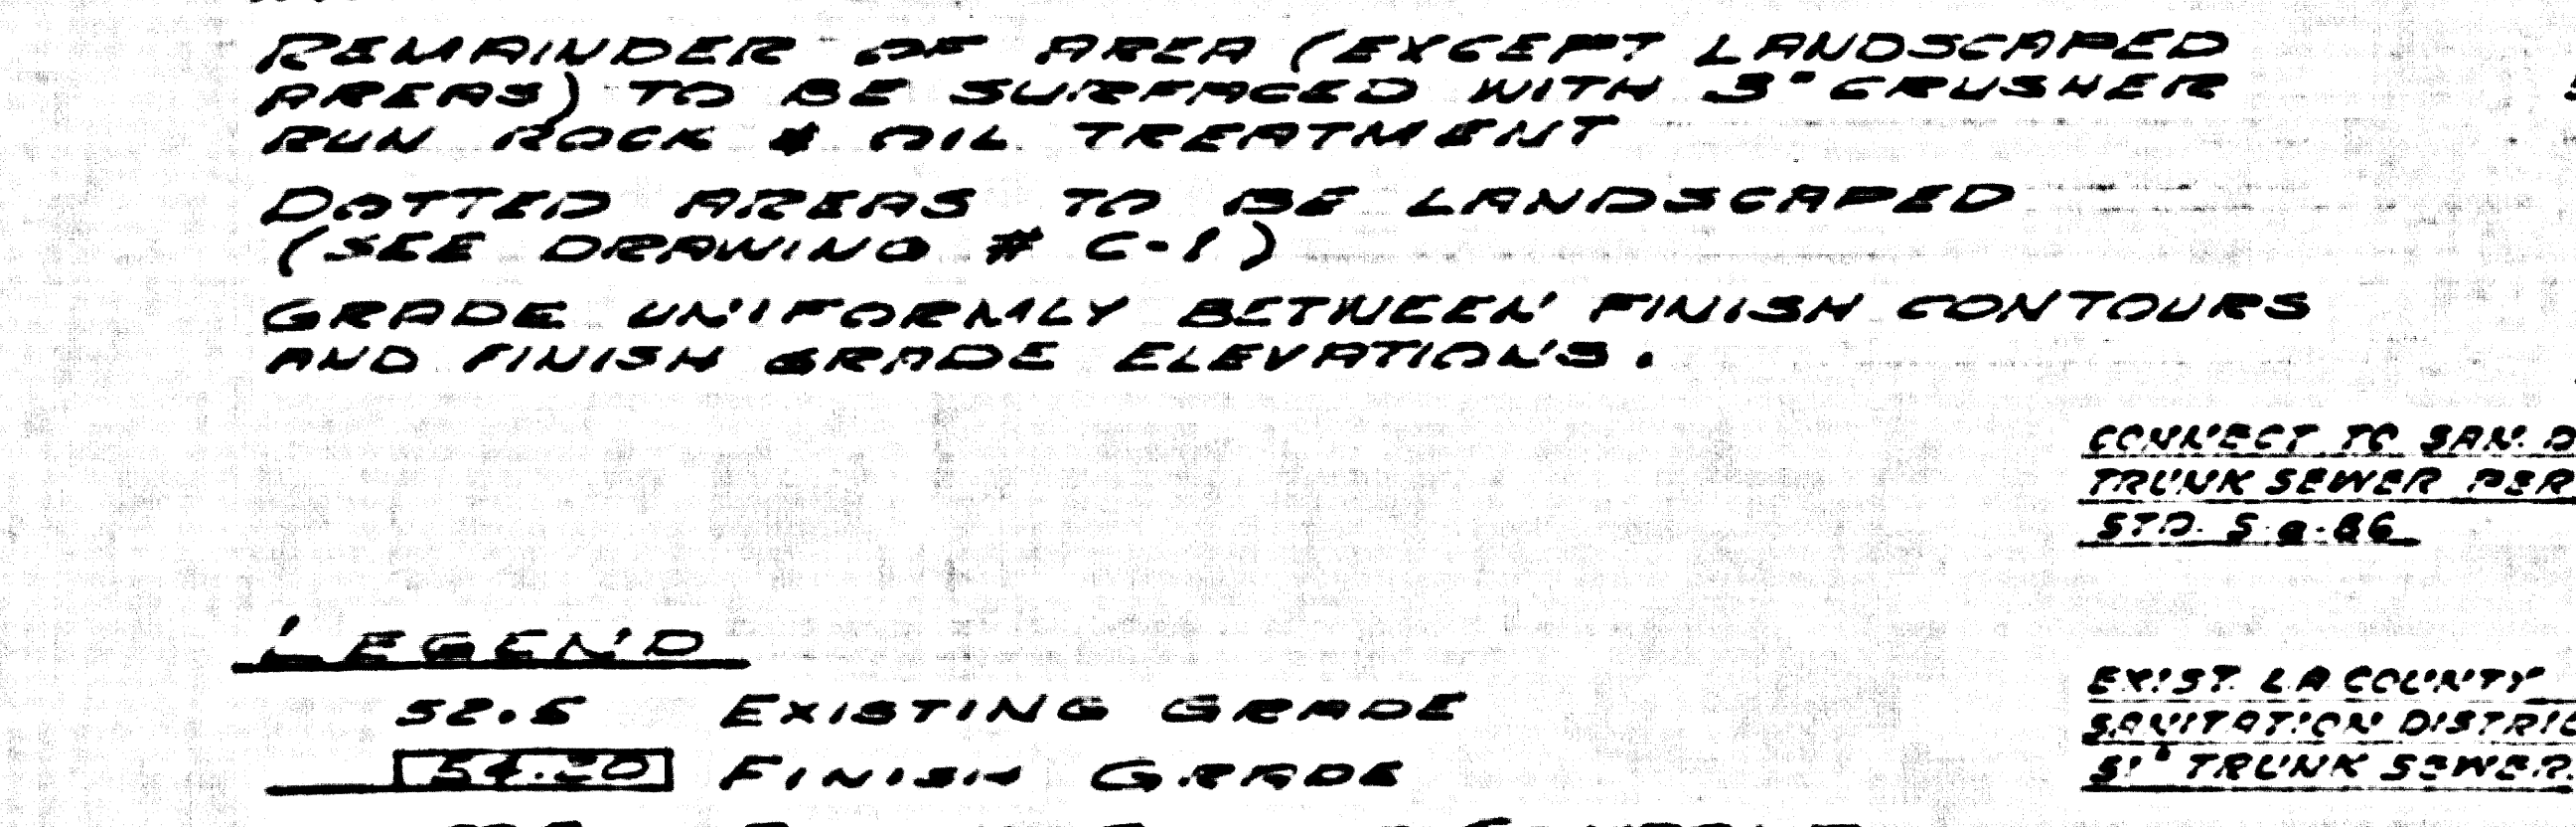 REMAINDER OF AREA (EXCEPT LANDSCAPED
AREAS) TO BE SURFACED WITH 3" CRUSHER
RUN ROCK & OIL TREATMENT
DOTTED AREAS TO BE LANDSCAPED
(SEE DRAWING # C-1)
GRADE UNIFORMLY BETWEEN FINISH CONTOURS
AND FINISH GRADE ELEVATIONS.
CONNECT TO SAN. D
TRUNK SEWER PER
STD. S-a-86
LEGEND
52.5 EXISTING GRADE
54.20 FINISH GRADE
EXIST. L A COUNTY
SANITATION DISTRIC
TRUNK SEWER